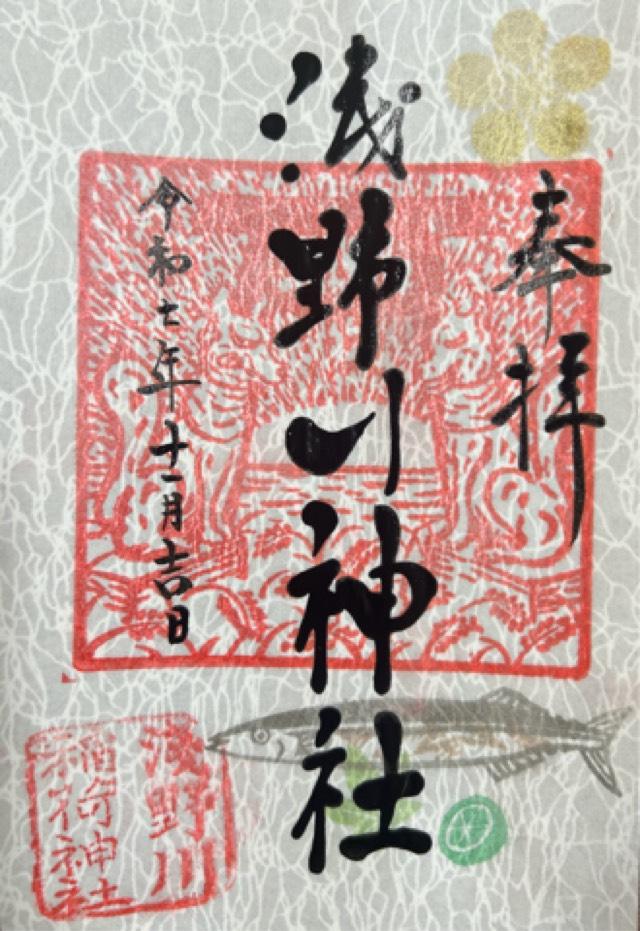 奉拝
浅野川神社
令和七年十一月吉日
浅野川
稲荷神社